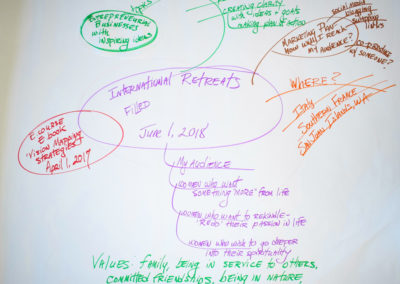 ENTREPRENEURIAL
BUSINESSES
with
INSPIRING IDEAS
CREATING CLARITY
with IDEAS + GOALS
MAKING PLAN OF ACTION
MARKETING PLAN -
HOW WILL I REACH
MY AUDIENCE?
SOCIAL MEDIA
BLOGGING
SWAPPING
LINKS
CO-PRODUCE
w/ SOMEONE?
WHERE?
ITALY
SOUTHERN FRANCE
SAN JUAN ISLANDS, WA
INTERNATIONAL RETREATS
FILLED
JUNE 1, 2018
E COURSE
E-BOOK
"VISION MAPPING
STRATEGIES"
APRIL 1, 2017
MY AUDIENCE
WOMEN WHO WANT
SOMETHING "MORE" FROM LIFE
WOMEN WHO WANT TO REKINDLE -
"REDO" THEIR PASSION IN LIFE
WOMEN WHO WISH TO GO DEEPER
INTO THEIR SPIRITUALITY
VALUES: FAMILY, BEING IN SERVICE TO OTHERS,
COMMITTED FRIENDSHIPS, BEING IN NATURE,